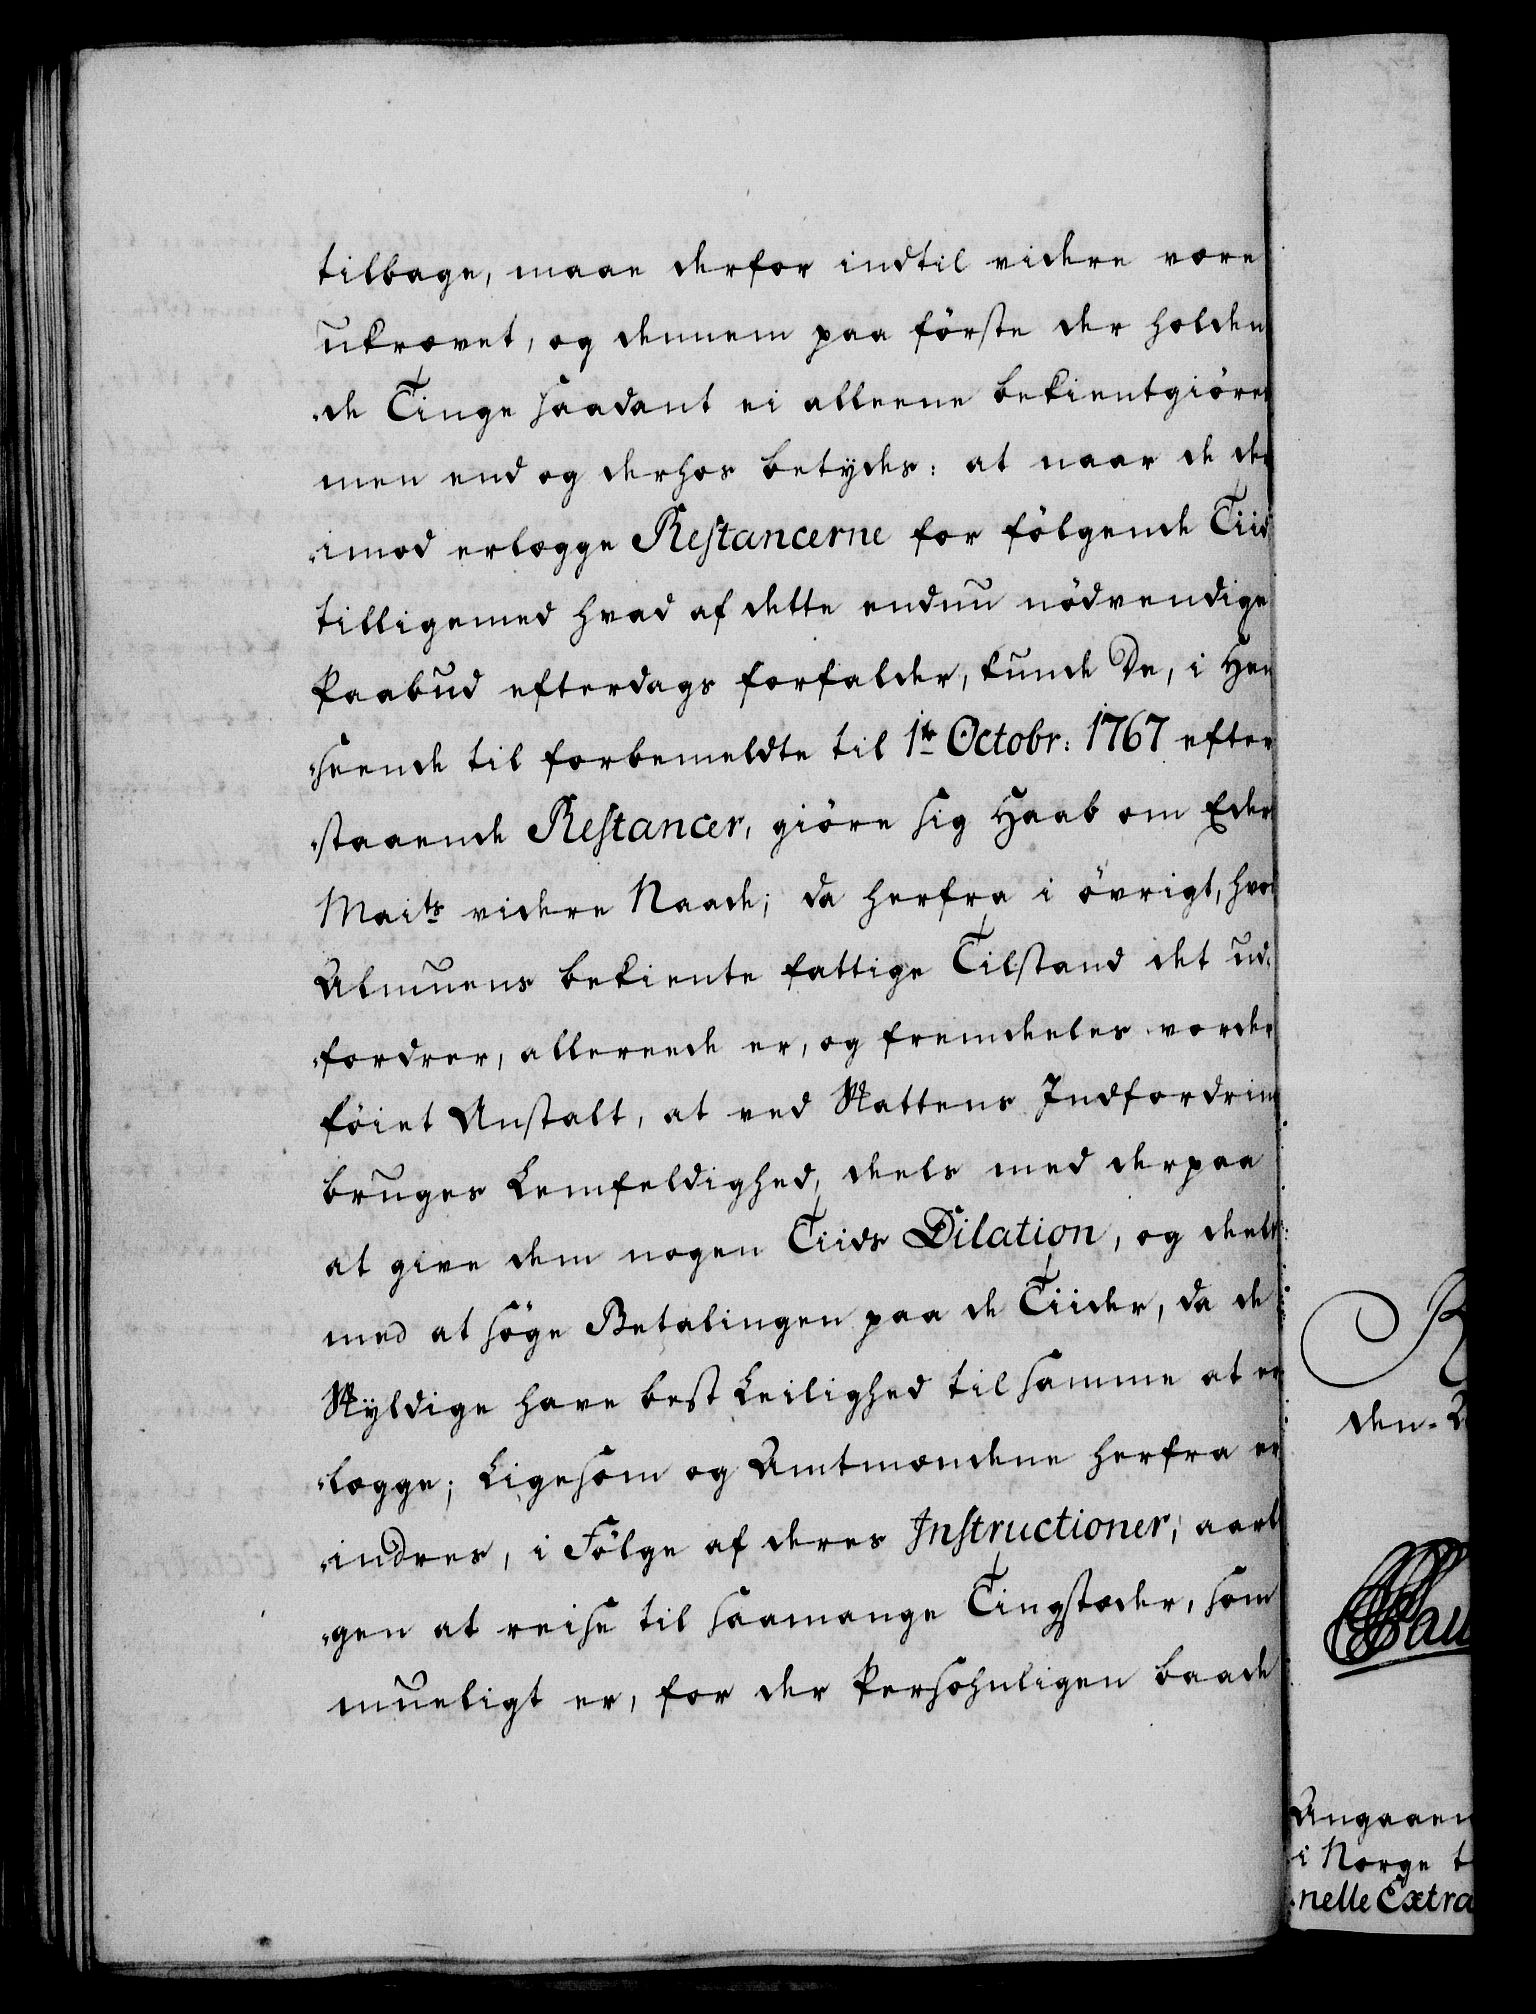 tilbage, maae derfor indtil videre være
ukrævet, og dennem paa förste der holden
de Tinge saadant ei alleene bekientgiöres
men end og derhos betydes: at naar de der
imod erlægge Restancerne for fölgende Tiid
tilligemed hvad af dette endnu nödvendige
Paabud efterdags forfalder, kunde De, i Hen
seende til forbemeldte til 1te Octobr: 1767 efter
staaende Restancer, giöre sig Haab om Eders
Maits videre Naade; da herfra i övrigt, hvor
Almuens bekiente fattige Tilstand det ud
fordrer, allereede er, og fremdeeles vorder
föiet Anstalt, at ved Skattens Indfordring
bruges Lemfeldighed, deels med derpaa
at give dem nogen Tiids Dilation, og deels
med at söge Betalingen paa de Tiider, da de
Skyldige have best Leilighed til samme at er
lægge; Ligesom og Amtmændene herfra er
indres, i Fölge af deres Instructioner, aarli
gen at reise til saamange Tingstæder, som
mueligt er, for der Persohnligen baade
den
Angaaen
i Norge
nelle Extra